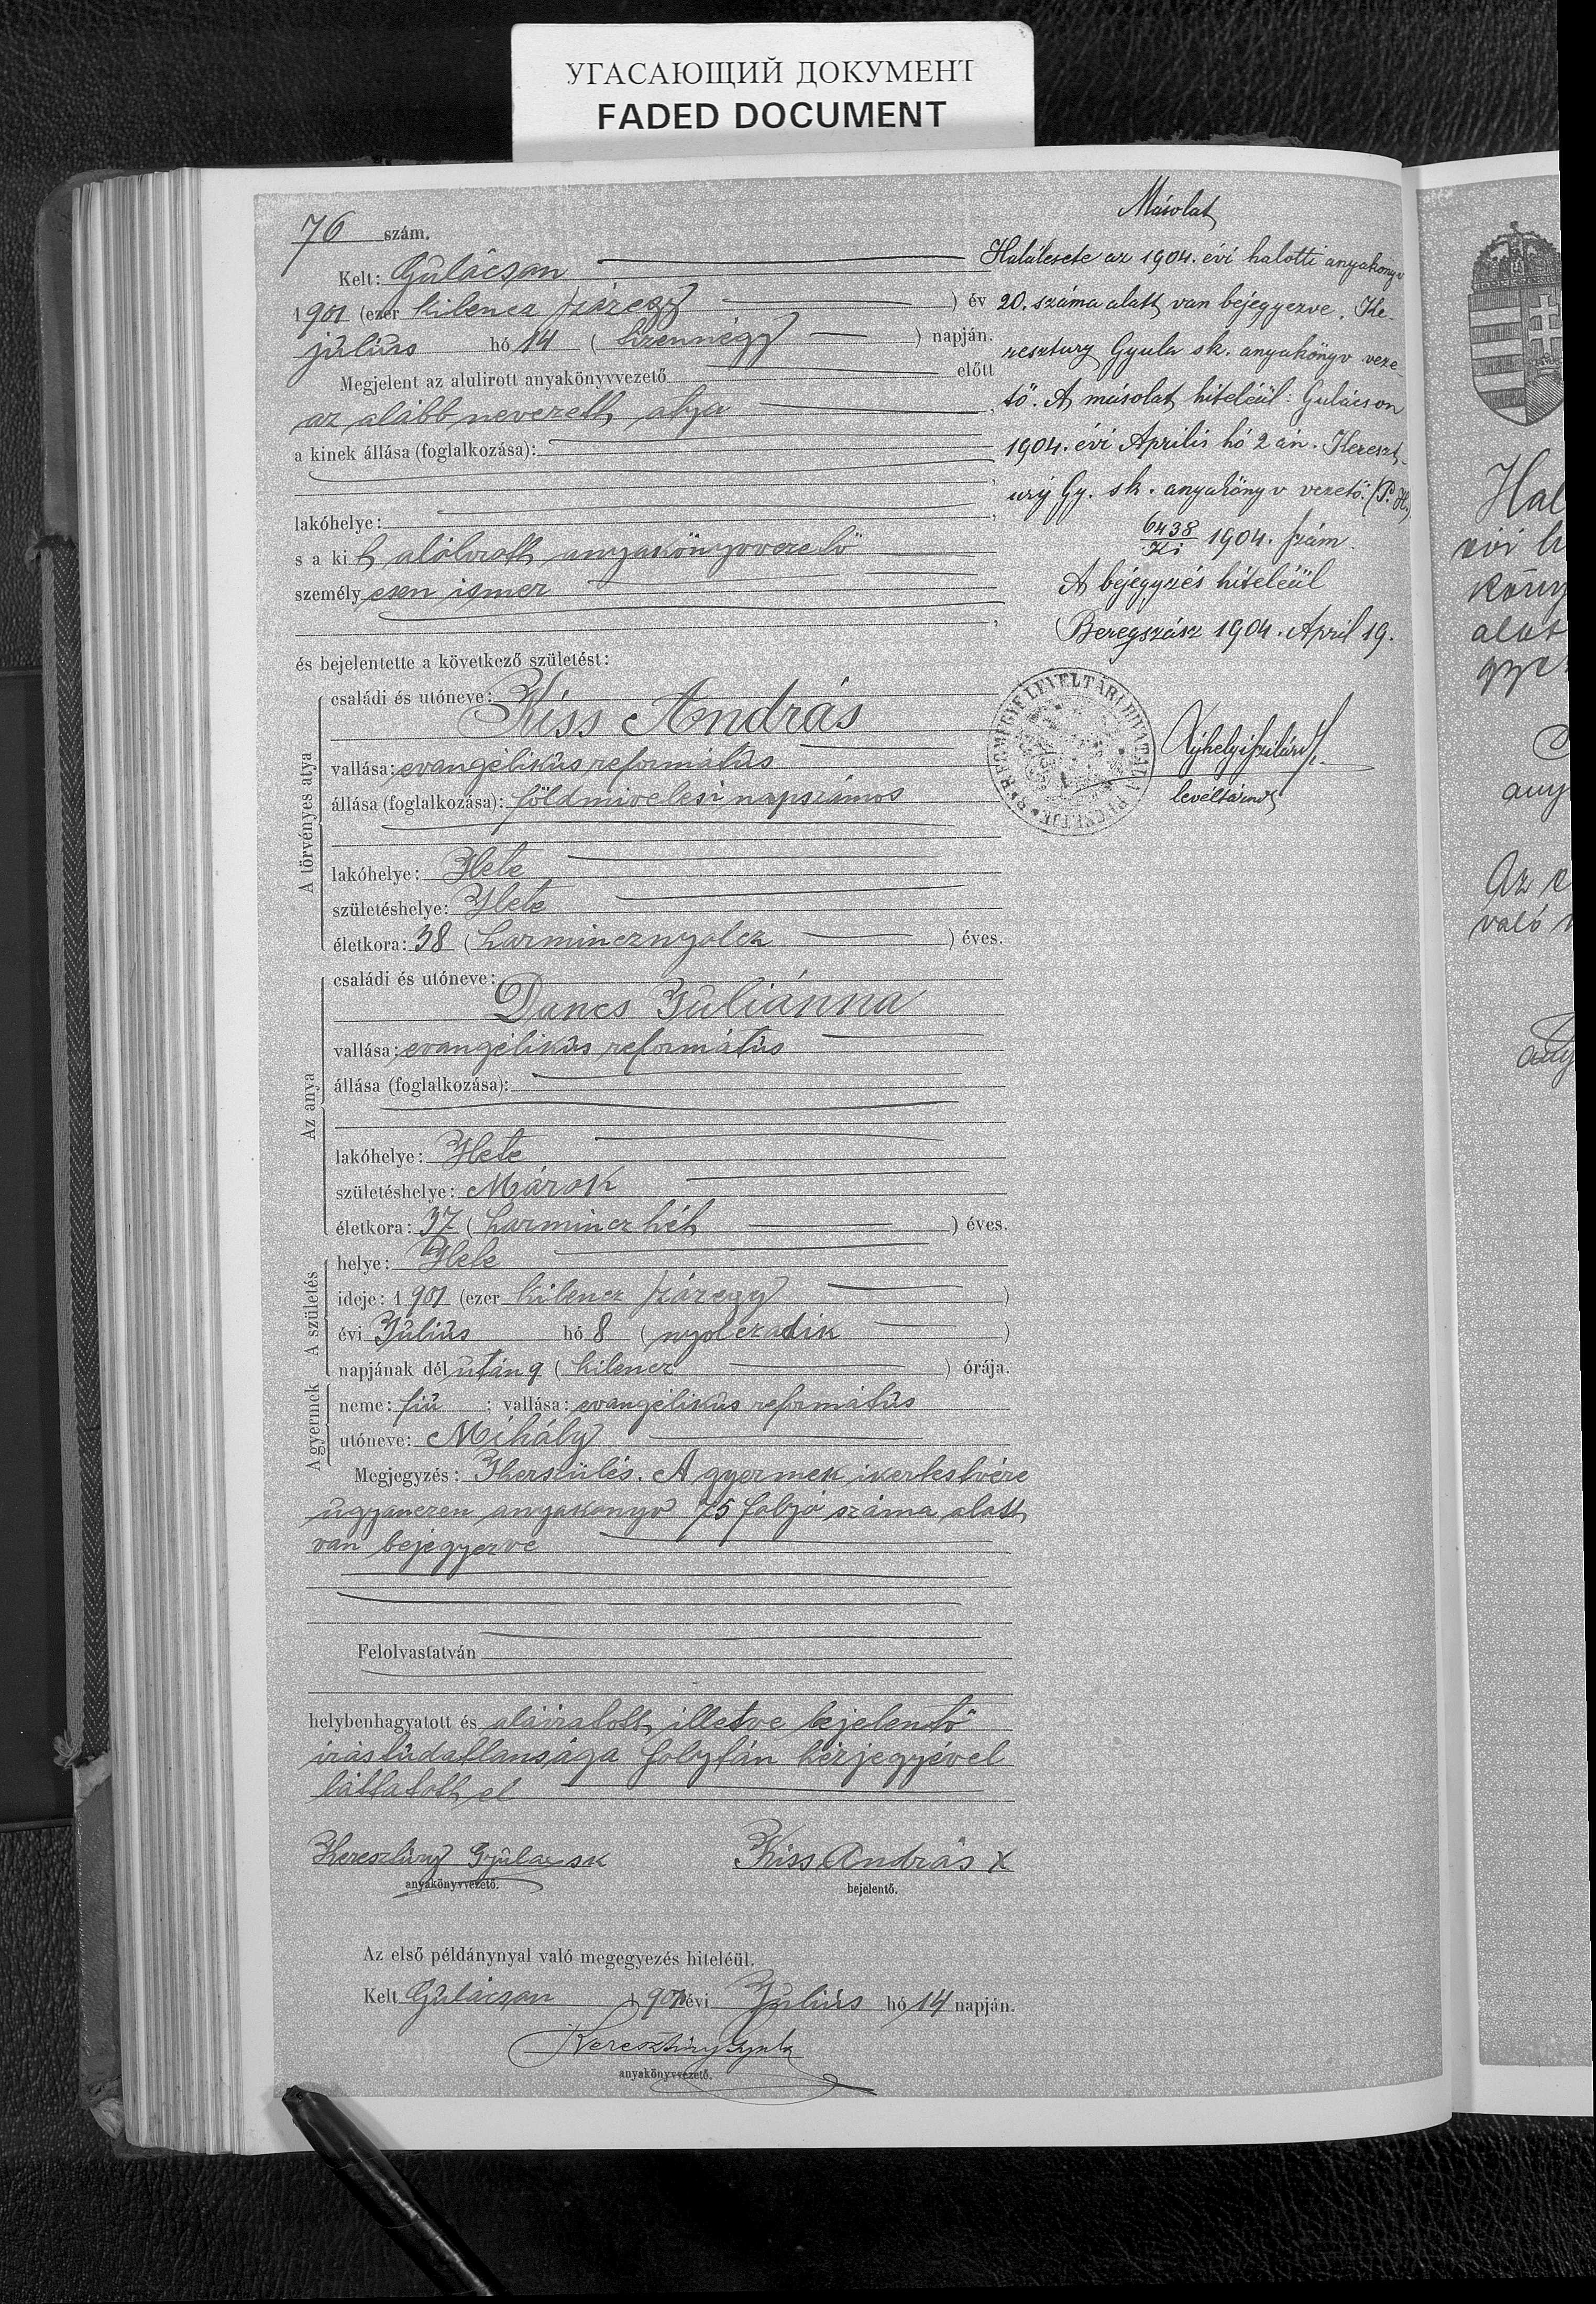 УГАСАЮЩИЙ ДОКУМЕНТ
FADED DOCUMENT
76 szám.
Kelt: Gulácson
1901 (ezer kilencz százegy ) év
július hó 14 ( tizennégy ) napján.
Megjelent az alulirott anyakönyvvezető előtt
az alább nevezett atya ,
a kinek állása (foglalkozása):
,
lakóhelye: ,
s a kit alólirott anyakönyvvezető
személyesen ismer
,
és bejelentette a következő születést:
A törvényes atya
családi és utóneve:
Kiss András
vallása: evangélikus református
állása (foglalkozása): földmivelesi napszámos
lakóhelye: Hete
születéshelye: Hete
életkora: 38 ( harmincznyolcz ) éves.
Az anya
családi és utóneve:
Dancs Juliánna
vallása: evangélikus református
állása (foglalkozása):
lakóhelye: Hete
születéshelye: Márok
életkora: 37 ( harmincz hét ) éves.
A születés
helye: Hete
ideje: 1901 (ezer kilencz százegy )
évi Július hó 8 ( nyolczadik )
napjának dél után 9 ( kilencz ) órája.
A gyermek
neme: fiú ; vallása: evangélikus református
utóneve: Mihály
Megjegyzés: Ikerszülés. A gyermek ikertestvére
ugyanezen anyakonyv 75 folyó száma alatt
van bejegyezve
Felolvastatván
helybenhagyatott és aláiratott, illetve bejelentő
irástudatlansága folytán kézjegyével
láttatott el
Keresztúry Gyula sk
anyakönyvvezető.
Kiss András X
bejelentő.
Az első példánynyal való megegyezés hiteléül.
Kelt Gulácson 1901 évi Július hó 14 napján.
Keresztúry Gyula
anyakönyvvezető.
Másolat
Halálesete az 1904. évi halotti anyakönyv
20. száma alatt van bejegyezve. Ke-
resztury Gyula sk. anyakönyv veze-
tő. A másolat hiteléül: Gulácson
1904. évi Április hó 2 án. Kereszt-
ury Gy. sk. anyakönyv vezető. (P. H.)
6438 1904. szám.
A bejegyzés hiteléül
Beregszász 1904. April 19.
BEREGMEGYE LEVÉLTÁRI HIVATAL
levéltárnok
Hal
évi h
köny
alat
gye
any
Az e
való